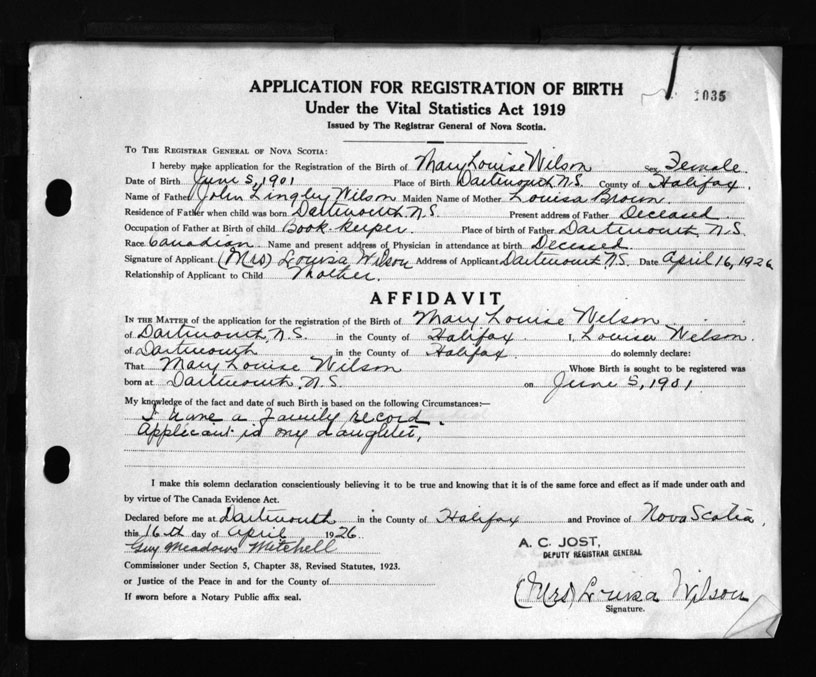 APPLICATION FOR REGISTRATION OF BIRTH
1035
Under the Vital Statistics Act 1919
Issued by The Registrar General of Nova Scotia.
TO THE REGISTRAR GENERAL OF NOVA SCOTIA:
I hereby make application for the Registration of the Birth of Mary Louise Wilson Sex Female
Date of Birth June 5, 1901 Place of Birth Dartmouth N.S. County of Halifax.
Name of Father John Lingley Wilson Maiden Name of Mother Louisa Brown.
Residence of Father when child was born Dartmouth N.S. Present address of Father Deceased.
Occupation of Father at Birth of child Book-keeper. Place of birth of Father Dartmouth, N.S.
Race Canadian. Name and present address of Physician in attendance at birth Deceased.
Signature of Applicant (Mrs) Louisa Wilson Address of Applicant Dartmouth N.S. Date April 16, 1926
Relationship of Applicant to Child Mother.
AFFIDAVIT
IN THE MATTER of the application for the registration of the Birth of Mary Louise Wilson
of Dartmouth, N.S. in the County of Halifax. I, Louisa Wilson.
of Dartmouth in the County of Halifax. do solemnly declare:
That Mary Louise Wilson Whose Birth is sought to be registered was
born at Dartmouth, N.S. on June 5, 1901
My knowledge of the fact and date of such Birth is based on the following Circumstances:—
I have a family record.
Applicant is my daughter,
I make this solemn declaration conscientiously believing it to be true and knowing that it is of the same force and effect as if made under oath and
by virtue of The Canada Evidence Act.
Declared before me at Dartmouth in the County of Halifax and Province of Nova Scotia,
this 16th day of April 1926.
Guy Meadows Mitchell
A. C. JOST,
DEPUTY REGISTRAR GENERAL
Commissioner under Section 5, Chapter 38, Revised Statutes, 1923.
or Justice of the Peace in and for the County of
(Mrs) Louisa Wilson
If sworn before a Notary Public affix seal.
Signature.